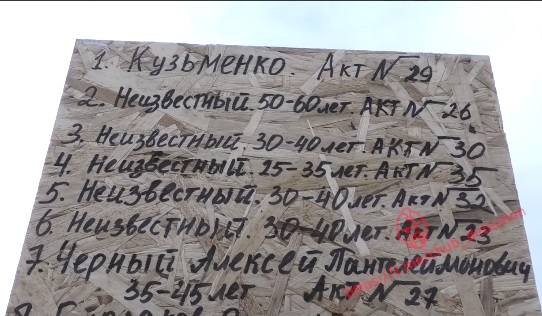 1. Кузьменко. Акт № 29
2. Неизвестный. 50-60 лет. Акт № 26
3. Неизвестный. 30-40 лет. Акт № 30
4. Неизвестный. 25-35 лет. Акт № 35
5. Неизвестный. 30-40 лет. Акт № 32
6. Неизвестный. 30-40 лет. Акт № 23
7. Черный Алексей Пантелеймонович
35-45 лет Акт № 27